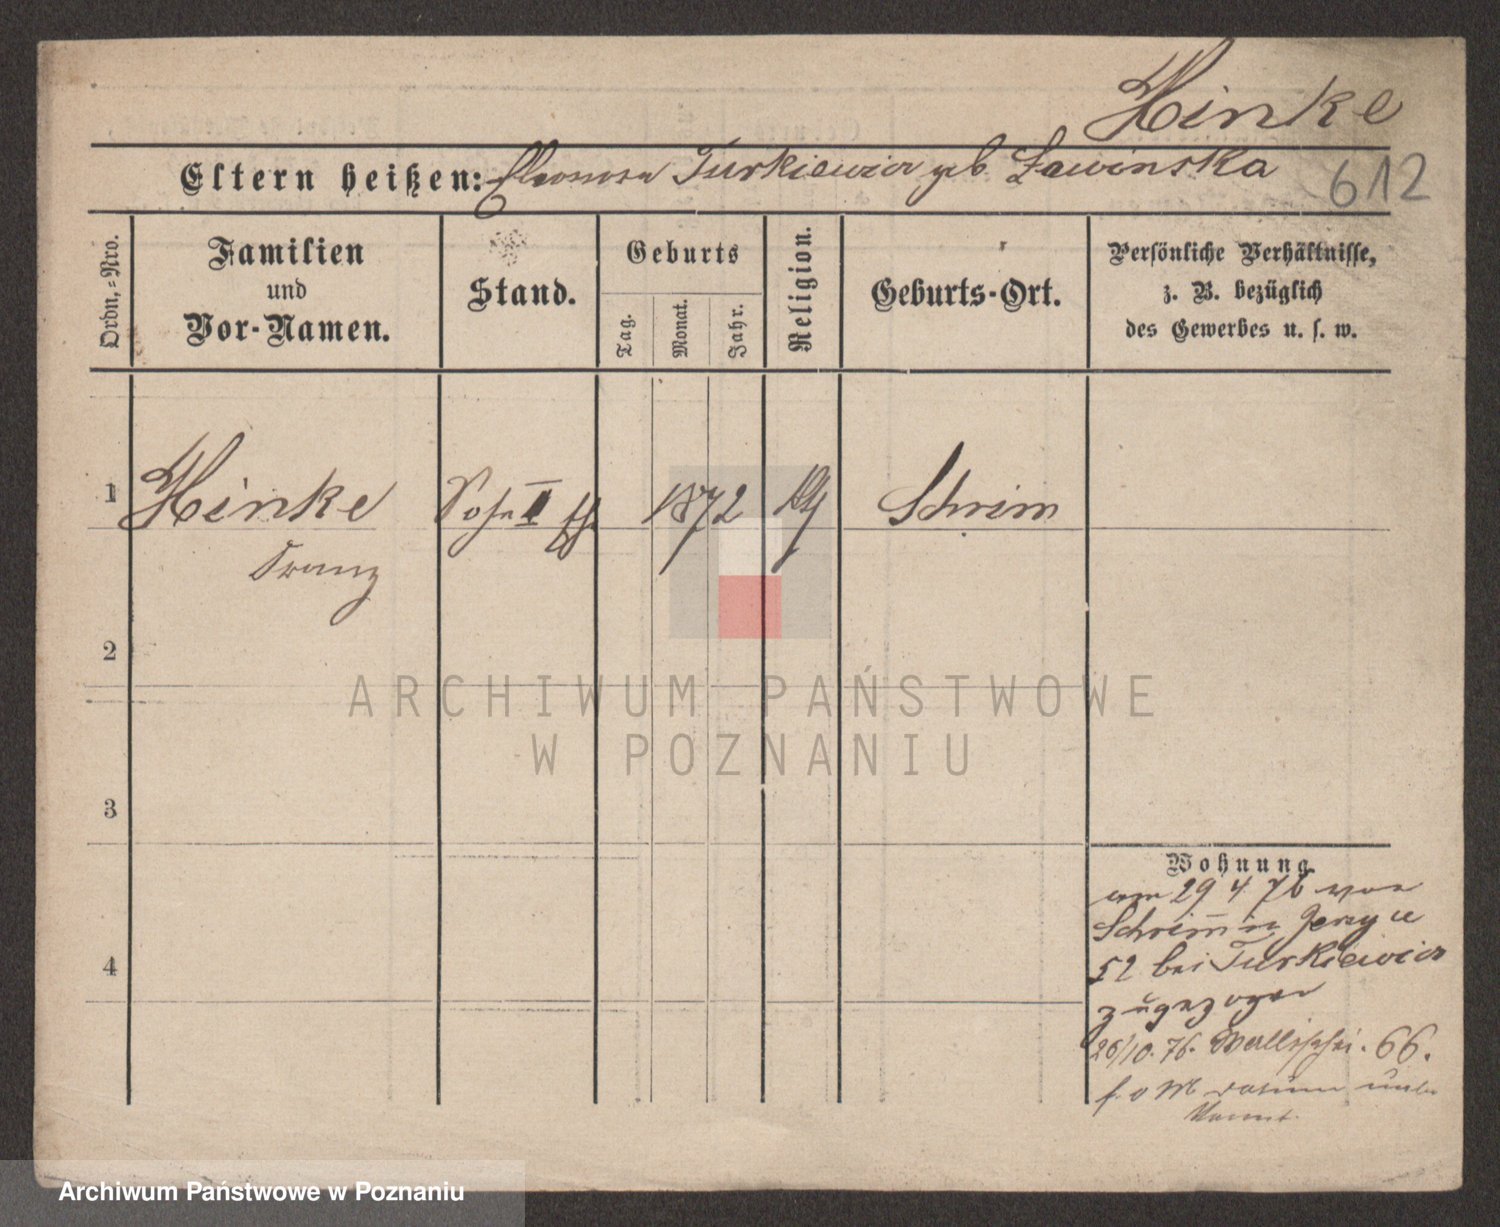 Hinke
Eltern heißen: Eleonora Turkiewicz geb Lawinska
612
Ordn.=Nro.
Familien
und
Vor-Namen.
Stand.
Geburts
Tag.
Monat.
Jahr.
Religion.
Geburts-Ort.
Persönliche Verhältnisse,
z. B. bezüglich
des Gewerbes u. s. w.
1 Hinke Sohn II 1872 Schrim
Franz
2
ARCHIWUM PAŃSTWOWE
W POZNANIU
3
Wohnung
am 29 4 76 von
Schrim in Jerzyce
4
52 bei Turkiewicz
zugezogen
26/10. 76. Wallischei. 66.
Archiwum Państwowe w Poznaniu